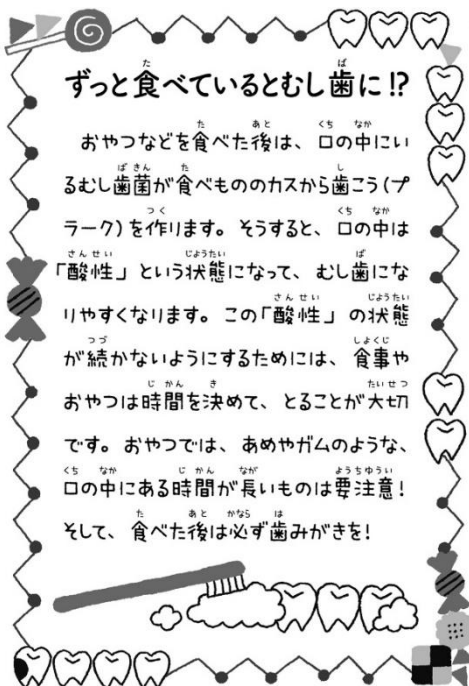 ずっと食べているとむし歯に!?
おやつなどを食べた後は、口の中にい
るむし歯菌が食べもののカスから歯こう(プ
ラーク)を作ります。そうすると、口の中は
「酸性」という状態になって、むし歯にな
りやすくなります。この「酸性」の状態
が続かないようにするためには、食事や
おやつは時間を決めて、とることが大切
です。おやつでは、あめやガムのような、
口の中にある時間が長いものは要注意!
そして、食べた後は必ず歯みがきを!